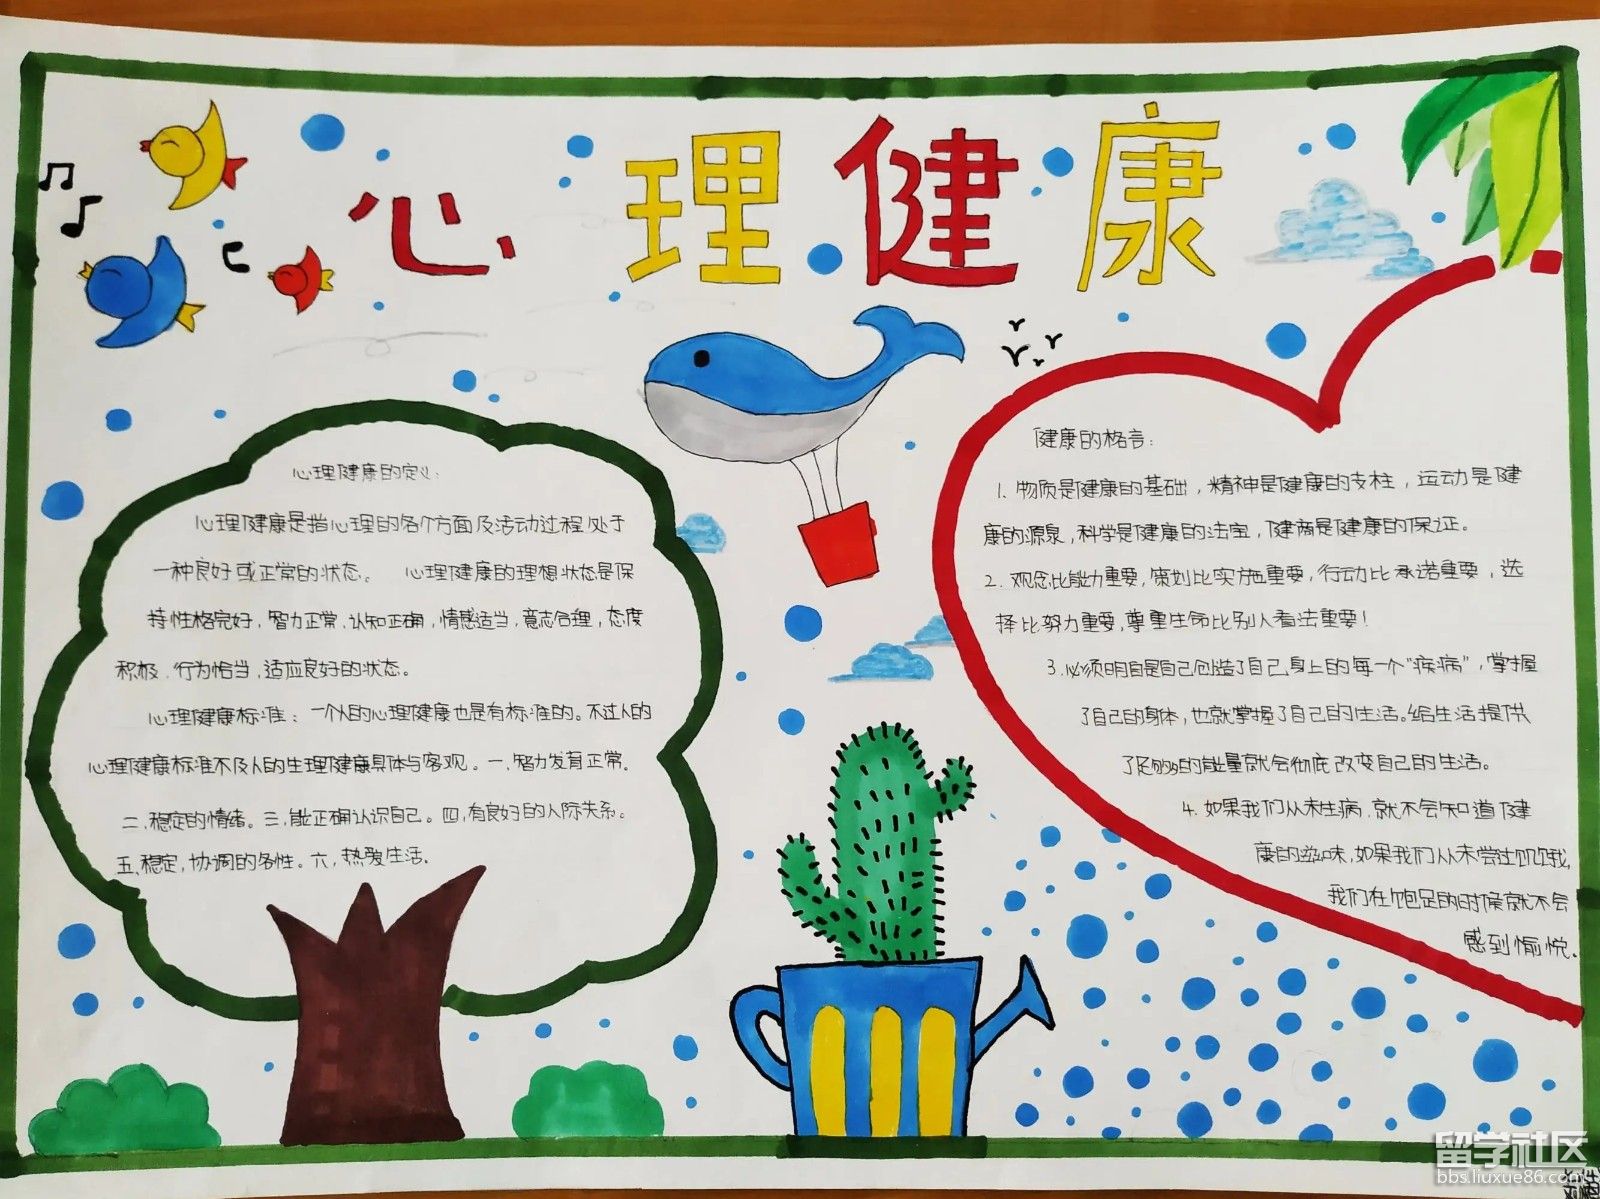 心理健康
心理健康的定义:
心理健康是指心理的各个方面及活动过程处于
一种良好或正常的状态。 心理健康的理想状态是保
持性格完好,智力正常,认知正确,情感适当,意志合理,态度
积极,行为恰当,适应良好的状态。
心理健康标准:一个人的心理健康也是有标准的。不过人的
心理健康标准不及人的生理健康具体与客观。一,智力发育正常。
二,稳定的情绪。三,能正确认识自己。四,有良好的人际关系。
五,稳定,协调的个性。六,热爱生活。
健康的格言:
1. 物质是健康的基础,精神是健康的支柱,运动是健
康的源泉,科学是健康的法宝,健商是健康的保证。
2. 观念比能力重要,策划比实施重要,行动比承诺重要,选
择比努力重要,尊重生命比别人看法重要!
3.必须明白是自己创造了自己身上的每一个“疾病”,掌握
了自己的身体,也就掌握了自己的生活。给生活提供
了足够的能量就会彻底改变自己的生活。
4. 如果我们从未生病,就不会知道健
康的滋味,如果我们从未尝过饥饿,
我们在饱足的时候就不会
感到愉悦。
留学社区
bbs.liuxue86.com